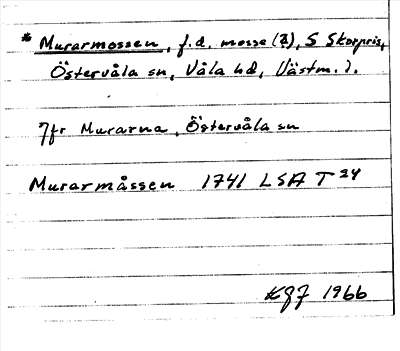 * Murarmossen, f.d. mosse (?), S Skorpris,
Östervåla sn, Våla hd, Västm. l.
Jfr Murarna, Östervåla sn
Murarmåssen 1741 LSA T 24
KGJ 1966